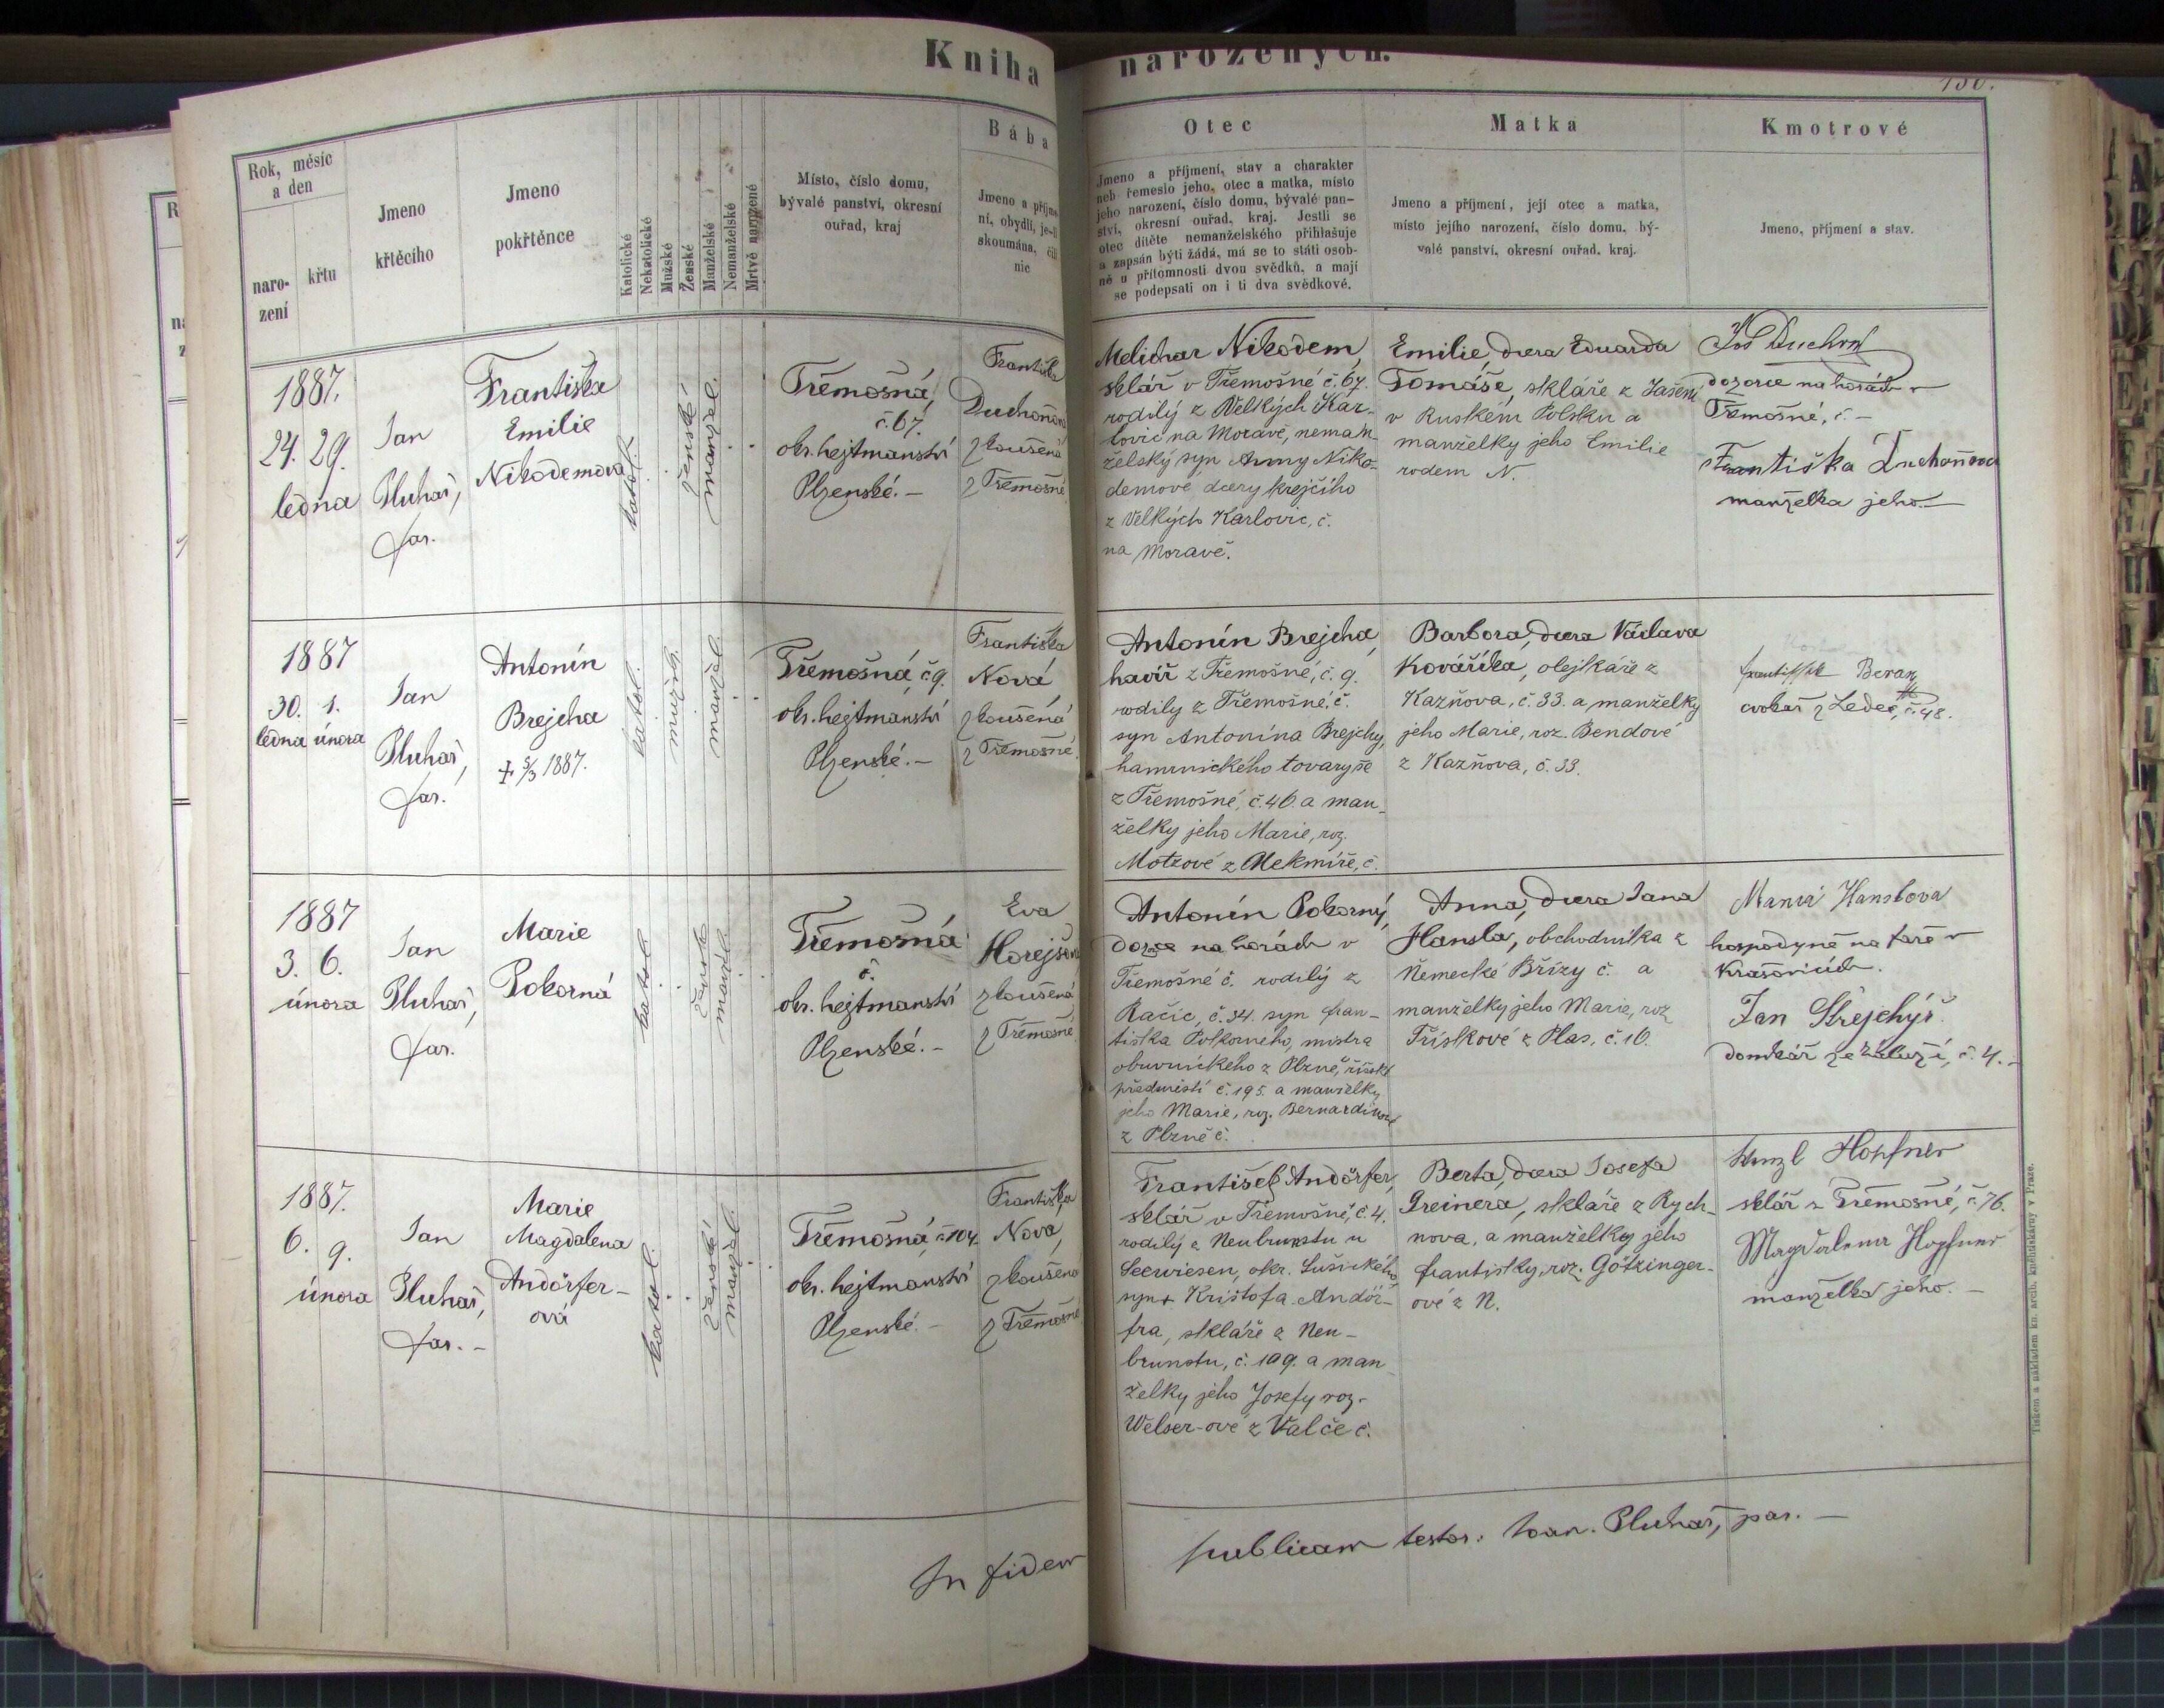 Kniha narozených.
130.
Rok, měsíc
a den
naro-
zení
křtu
Jmeno
křtěcího
Jmeno
pokřtěnce
Katolické
Nekatolické
Mužské
Ženské
Manželské
Nemanželské
Mrtvě narozené
Místo, číslo domu,
bývalé panství, okresní
ouřad, kraj
Bába
Jmeno a příjme-
ní, obydlí, je-li
skoumána, čili
nic
Otec
Jmeno a příjmení, stav a charakter
neb řemeslo jeho, otec a matka, místo
jeho narození, číslo domu, bývalé pan-
ství, okresní ouřad, kraj. Jestli se
otec dítěte nemanželského přihlašuje
a zapsán býti žádá, má se to státi osob-
ně u přítomnosti dvou svědků, a mají
se podepsati on i ti dva svědkové.
Matka
Jmeno a příjmení, její otec a matka,
místo jejího narození, číslo domu, bý-
valé panství, okresní ouřad, kraj.
Kmotrové
Jmeno, příjmení a stav.
1887.
24. 29.
ledna
Jan
Pluhař,
far.
Františka
Emilie
Nikodemova
katol.
ženské
manžel.
Třemošná,
č. 67.
okr. hejtmanství
Plzenské. –
Františka
Duchoňová
zkoušená
z Třemošné
Melichar Nikodem,
sklář v Třemošné č. 67.
rodilý z Velkých Kar-
lovic na Moravě, neman-
želský syn Anny Niko-
demové dcery krejčího
z Velkých Karlovic, č.
na Moravě.
Emilie, dcera Eduarda
Tomáše, skláře z Jašení
v Ruském Polsku a
manželky jeho Emilie
rodem N.
Jos Duchoň
dozorce na horách v
Třemošné, č –
Františka Duchoňova
manželka jeho –
1887
30. 1.
ledna února
Jan
Pluhař,
far.
Antonín
Brejcha
+ 5/3 1887.
katol.
mužsk.
manžel.
Třemošná, č 9.
okr. hejtmanství
Plzenské. –
Františka
Nová,
zkoušená
z Třemošné
Antonín Brejcha,
havíř z Třemošné, č. 9.
rodily z Třemošné, č.
syn Antonína Brejchy,
hamrnického tovaryše
z Třemošné, č. 46. a man-
želky jeho Marie, roz.
Motzové z Nekmíře, č.
Barbora, dcera Václava
Kováříka, olejkáře z
Kazňova, č. 33. a manželky
jeho Marie, roz. Bendové
z Kazňova, č. 33.
Beran
cvokař z Ledec, č. 48.
1887
3. 6.
února
Jan
Pluhař,
far.
Marie
Pokorná
katol.
žensk.
manžel.
Třemošná
č.
okr. hejtmanství
Plzenské. –
Eva
Horejšová
zkoušená
z Třemošné
Antonín Pokorný,
dozce na horách v
Třemošné č. rodilý z
Račic, č. 34. syn Fran-
tiska Pokorného, mistra
obuvnického z Plzně, říšské
předměstí č. 195. a manželky
jeho Marie, roz. Bernardinové
z Plzně č.
Anna, dcera Jana
Hansla, obchodníka z
Německé Břízy č. a
manželky jeho Marie, roz
Třískové z Plas, č. 10.
Maria Hanslova
hospodyně na faře v
Krašovicích.
Jan Střejchýř
domkář ze Záluží, č. 4. –
1887.
6. 9.
února
Jan
Pluhař,
far. –
Marie
Magdalena
Andörfer-
ová
katol.
ženské.
manžel.
Třemošná, č. 104.
okr. hejtmanství
Plzenské. –
Františka
Nova,
zkoušená
z Třemošné
František Andörfer,
sklář v Třemošné, č. 4.
rodilý z Neubrunstu u
Seewiesen, okr. Sušického
syn + Krištofa Andör-
fra, skláře z Neu-
brunstu, č. 109. a man
želky jeho Josefy roz.
Welser-ové z Valče č.
Berta, dcera Josefa
Greinera, skláře z Rych-
nova, a manželky jeho
Františky, roz. Götzinger-
ové z N.
Hopfner
sklář z Třemošné, č. 76.
Magdalena Hopfner
manželka jeho. –
In fidem publicam testor: Joan. Pluhař, par. –
Tiskem a nákladem kn. arcib. knihtiskárny v Praze.